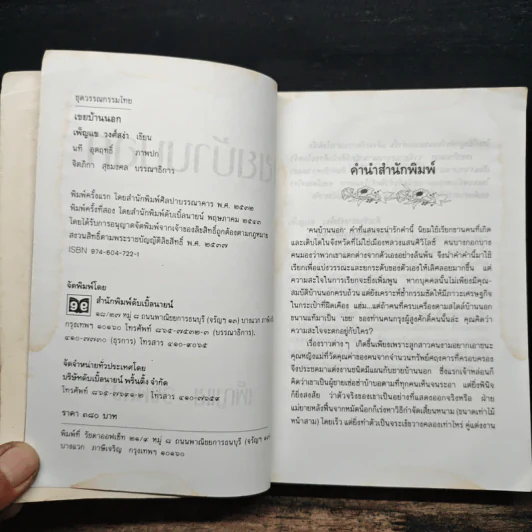 ชุดวรรณกรรมไทย
เขยบ้านนอก
เพ็ญแข วงศ์สง่า เขียน
นที อุตฤทธิ์ ภาพปก
จิตติภา สุขมงคล บรรณาธิการ
พิมพ์ครั้งแรก โดยสำนักพิมพ์ศิลปาบรรณาคาร พ.ศ. ๒๕๓๒
พิมพ์ครั้งที่สอง โดยสำนักพิมพ์ดับเบิ้ลนายน์ พฤษภาคม ๒๕๔๓
โดยได้รับการอนุญาตจัดพิมพ์จากเจ้าของลิขสิทธิ์ถูกต้องตามกฎหมาย
สงวนสิทธิ์ตามพระราชบัญญัติลิขสิทธิ์ พ.ศ. ๒๕๓๗
ISBN 974-604-722-1
จัดพิมพ์โดย
สำนักพิมพ์ดับเบิ้ลนายน์
๑๘/๒๗ หมู่ ๘ ถนนพาณิชยการธนบุรี (จรัญฯ ๑๓) บางแวก ภาษีเจริญ
กรุงเทพฯ ๑๐๑๖๐ โทรศัพท์ ๘๖๕-๗๕๓๒-๓ (บรรณาธิการ),
๔๑๐-๗๗๓๐ (ธุรการ) โทรสาร ๔๑๐-๙๐๖๕
จัดจำหน่ายทั่วประเทศโดย
บริษัทดับเบิ้ลนายน์ พริ้นติ้ง จำกัด
โทรศัพท์ โทรสาร ๔๑๐-๗๖๕๙
ราคา ๑๘๐ บาท
พิมพ์ที่ รัชดาออฟเซ็ท ๒๑/๙ หมู่ ๘ ถนนพาณิชยการธนบุรี (จรัญฯ ๑๓)
บางแวก ภาษีเจริญ กรุงเทพฯ ๑๐๑๖๐
คำนำสำนักพิมพ์
'คนบ้านนอก' คำที่แสนจะน่ารักคำนี้ นิยมใช้เรียกขานคนที่เกิด
และเติบโตในจังหวัดที่ไม่ใช่เมืองหลวงแสนศิวิไลซ์ คนบางกอกบาง
คนมองว่าพวกเขาแตกต่างจากตัวเองอย่างล้นพ้น จึงนำคำคำนี้มาใช้
เรียกเพื่อแบ่งวรรณะและยกระดับของตัวเองให้เลิศลอยมากขึ้น แต่
ความสะใจในการเรียกจะยิ่งเพิ่มพูน หากบุคคลนั้นไม่เพียงมีคุณ-
สมบัติบ้านนอกครบถ้วน แต่ยังเคราะห์ซ้ำกรรมซัดให้มีภาวะเศรษฐกิจ
ในกระเป๋าที่ฝืดเคือง แฮ่ม...แต่ถ้าคนที่ครบเครื่องตามสไตล์บ้านนอก
ขนานแท้มาเป็น 'เขย' ของท่านคนกรุงผู้สูงศักดิ์คนนั้นล่ะ คุณคิดว่า
ความสะใจจะตกอยู่กับใคร?
เรื่องราวต่างๆ เกิดขึ้นเพียงเพราะลูกสาวคนงามอยากเอาชนะ
คุณหญิงแม่ที่วัดคุณค่าของคนจากจำนวนทรัพย์ศฤงคารที่ครอบครอง
จึงประชดมาแต่งงานชนิดมีแผนกับชายบ้านนอก ซึ่งแรกเจ้าหล่อนก็
คิดว่าเขาเป็นผู้ชายเซ่อซ่าบ้าบอตามที่ทุกคนเห็นจนระอา แต่ยิ่งพินิจ
ก็ยิ่งสงสัย ว่าตัวจริงของเขาเป็นอย่างที่แสดงออกจริงหรือ ฝ่าย
แม่ยายหลังฟื้นจากหมัดน็อกก็เร่งหาวิธีกำจัดเสี้ยนหนาม (ขนาดเท่าไม้
หน้าสาม) โดยเร็ว แต่ยิ่งทำตัวเป็นจระเข้ขวางคลองเท่าไหร่ คู่แต่งงาน